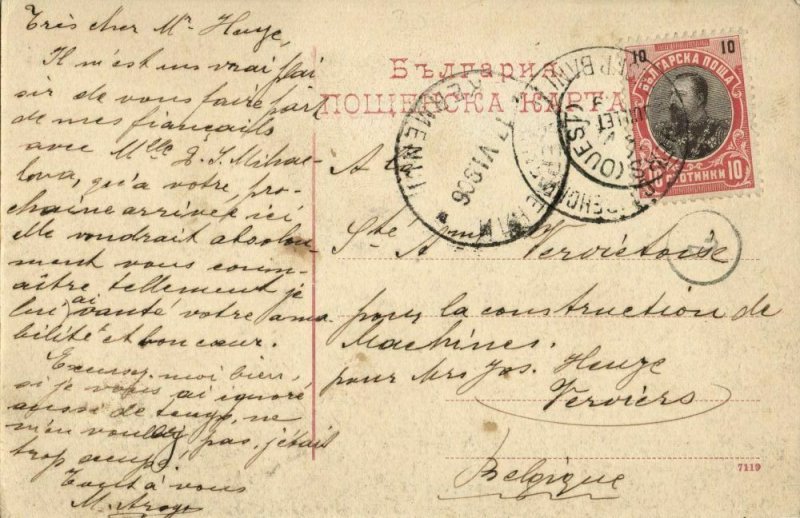 Très cher Mr. Heuze,
Il m'est un vrai plai
sir de vous faire part
de mes fiançails
avec Mlle Z. S. Mihae-
lova, qu'a votre, pro-
chaine arrivée ici
elle voudrait absolu-
ment vous conn-
aître tellement je
lui ai vanté votre ama-
bilité et bon cœur.
Excusez moi bien,
si je vous ai ignoré
aussi de temps, ne
m'en voulez pas, j'étais
trop occupé.
Tout à vous
М.
България
ПОЩЕНСКА КАРТА
10 10
БЪЛГАРСКА ПОЩА
10 СТОТИНКИ 10
VI 906
VERVIERS (OUEST)
JUILLET
A la
Sté Ame Verviétoise
pour la construction de
Machines.
pour Mrs Jos. Heuze
Verviers
Belgique
7119